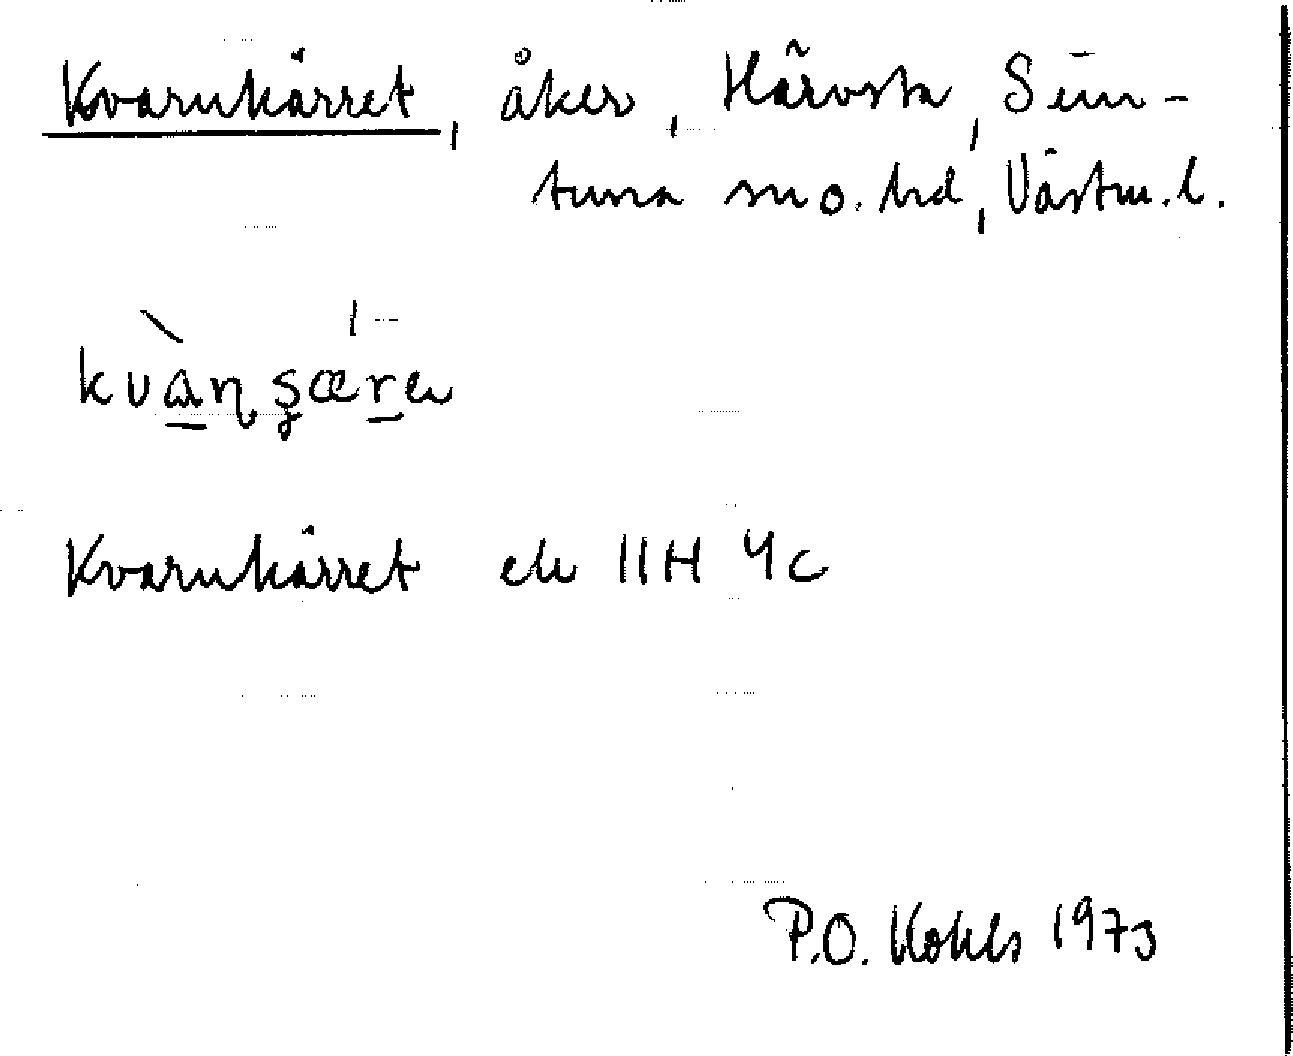 Kvarnkärret, åker, Härvsta, Sim-
tuna sn o. hd, Västm. l.
kvàɳʂæ̀ren
Kvarnkärret ek 11H 4c
P.O. Kohls 1973